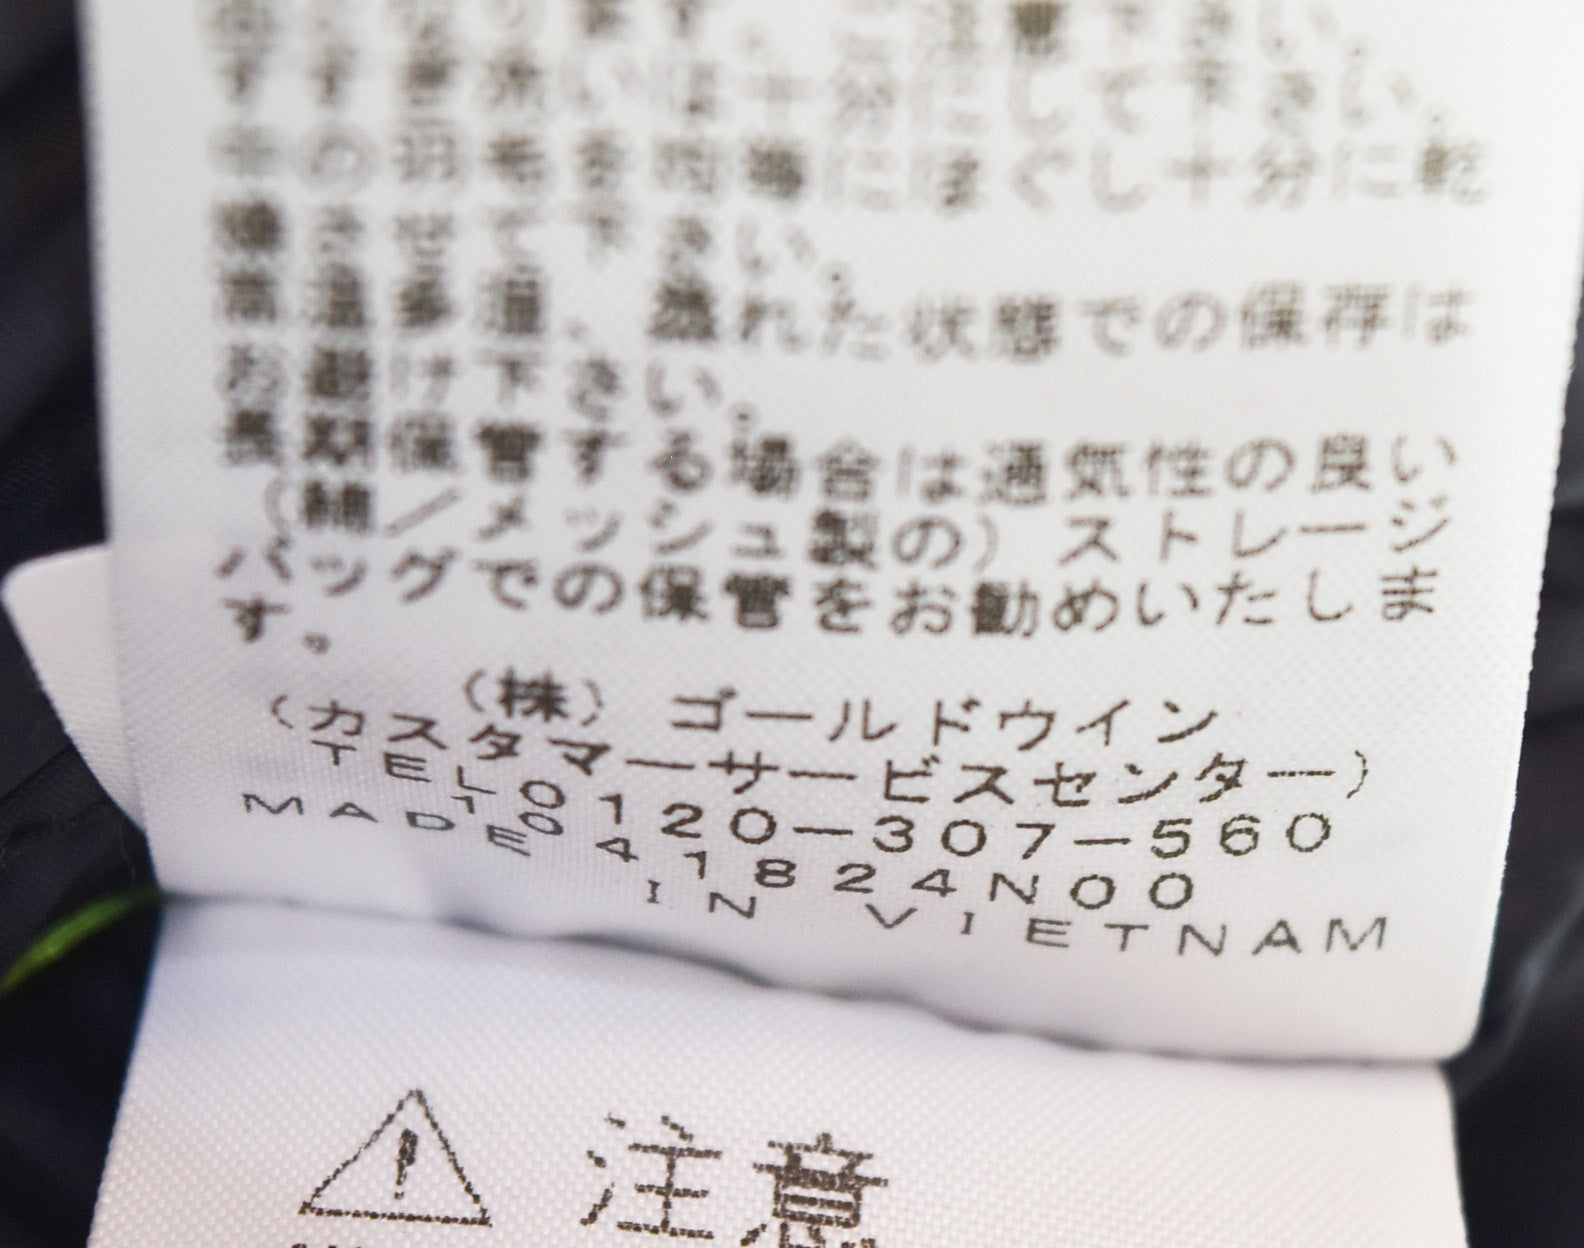 の羽毛を均等にほぐし十分に乾
燥させて下さい。
高温多湿、蒸れた状態での保存は
お避け下さい。
長期保管する場合は通気性の良い
(綿/メッシュ製の)ストレージ
バッグでの保管をお勧めいたしま
す。
(株)ゴールドウイン
(カスタマーサービスセンター)
TEL0120-307-560
1041824N00
MADE IN VIETNAM
注意